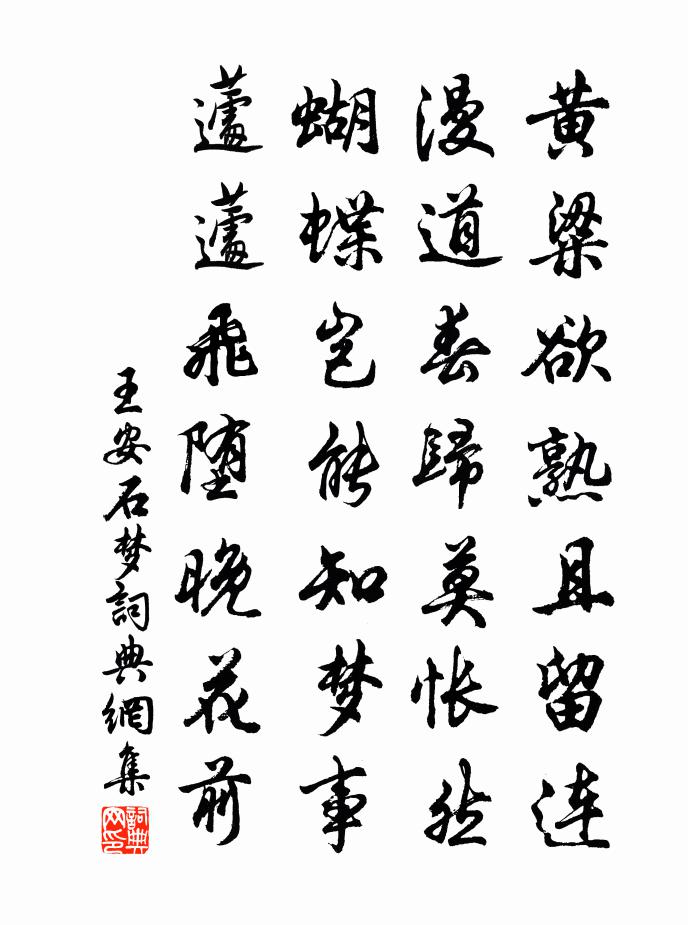 黄粱欲熟且留连
漫道春歸莫怅然
蝴蝶岂能知梦事
蘧蘧飛堕晚花前
王安石梦詞典網集
詞典网印